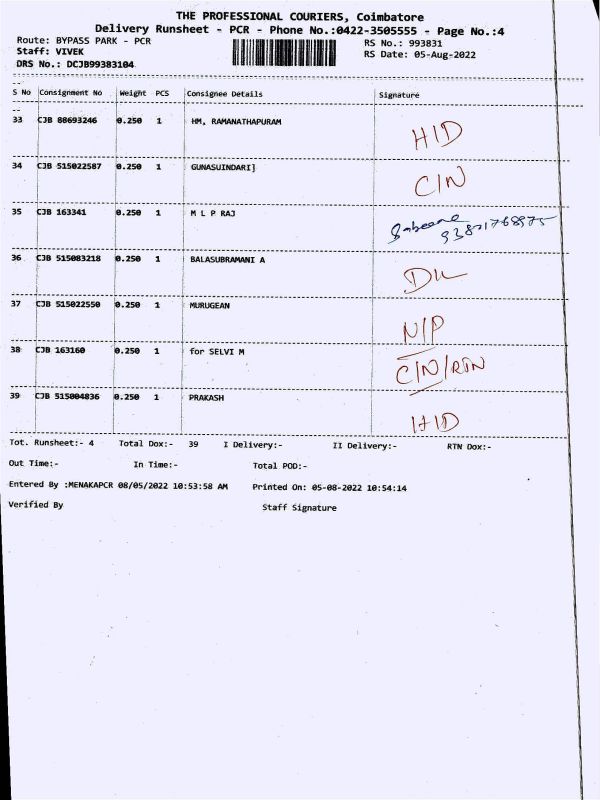 THE PROFESSIONAL COURIERS, Coimbatore
Delivery Runsheet - PCR - Phone No.:0422-3505555 - Page No.:4
Route: BYPASS PARK - PCR RS No.: 993831
Staff: VIVEK RS Date: 05-Aug-2022
DRS No.: DCJB99383104
S No Consignment No Weight PCS Consignee Details Signature
33 CJB 88693246 0.250 1 HM, RAMANATHAPURAM H/D
34 CJB 515022587 0.250 1 GUNASUINDARI] C/N
35 CJB 163341 0.250 1 M L P RAJ
36 CJB 515083218 0.250 1 BALASUBRAMANI A
37 CJB 515022550 0.250 1 MURUGEAN N/P
38 CJB 163160 0.250 1 for SELVI M C/N/RTN
39 CJB 515004836 0.250 1 PRAKASH H/D
Tot. Runsheet:- 4 Total Dox:- 39 I Delivery:- II Delivery:- RTN Dox:-
Out Time:- In Time:- Total POD:-
Entered By :MENAKAPCR 08/05/2022 10:53:58 AM Printed On: 05-08-2022 10:54:14
Verified By Staff Signature